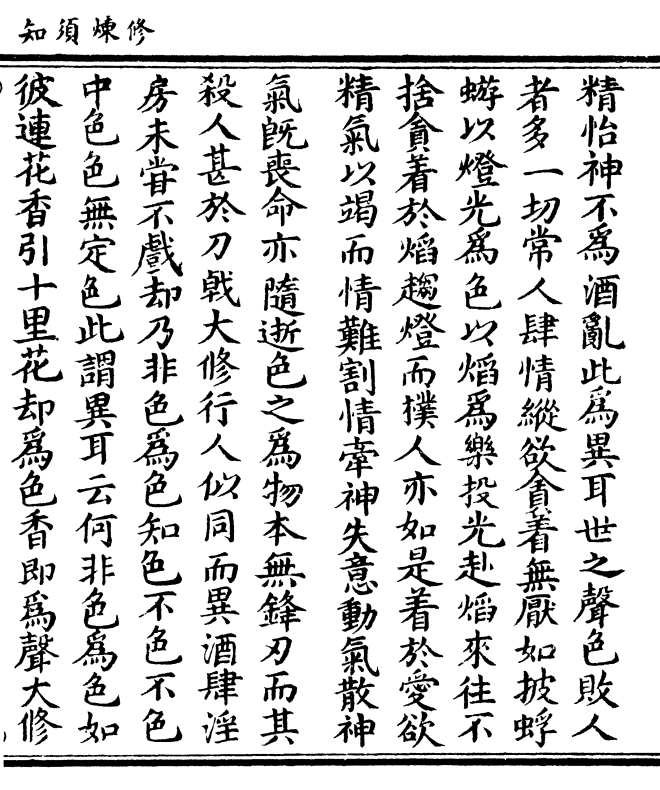 修煉須知
精怡神不爲酒亂此爲異耳世之聲色敗人
者多一切常人肆情縱欲貪着無厭如披蜉
蝣以燈光爲色以熖爲樂投光赴熖來往不
捨貪着於熖趨燈而撲人亦如是着於愛欲
精氣以竭而情難割情牽神失意動氣散神
氣旣喪命亦隨逝色之爲物本無鋒刃而其
殺人甚於刀戟大修行人似同而異酒肆淫
房未嘗不戲却乃非色爲色知色不色不色
中色色無定色此謂異耳云何非色爲色如
彼連花香引十里花却爲色香即爲聲大修